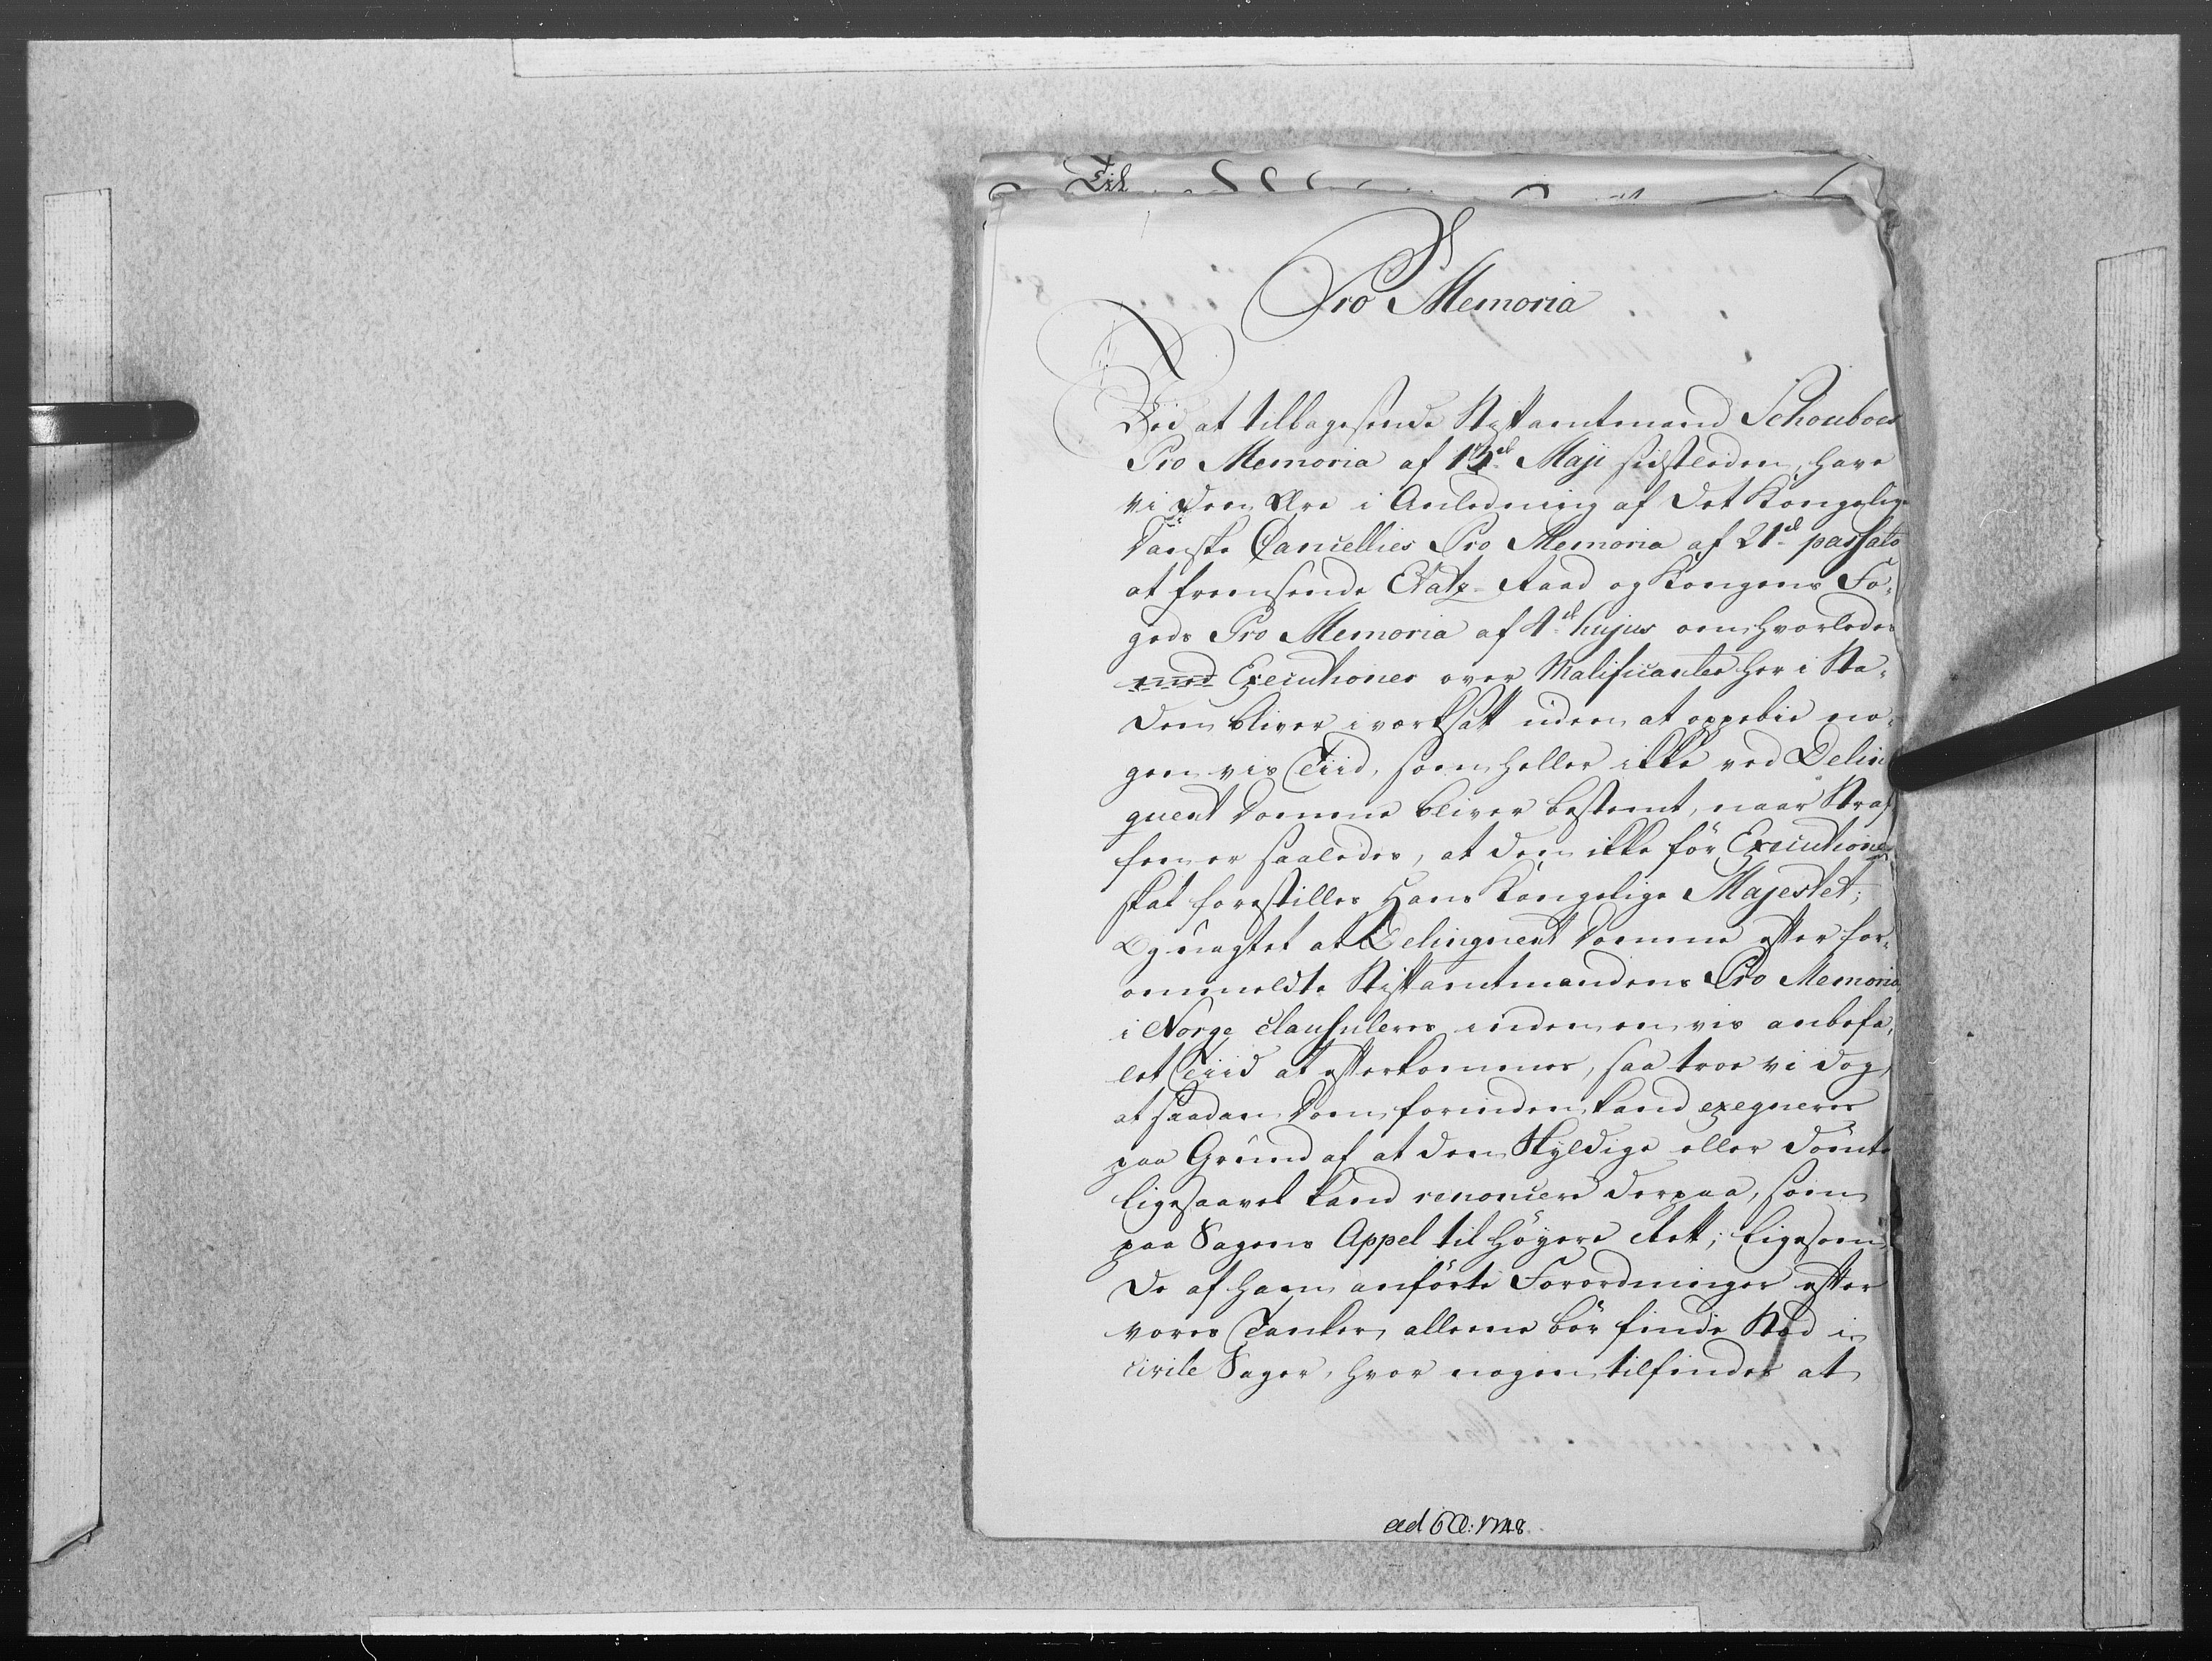 Til
Pro Memoria
Ved at tilbagesende Stiftamtmand Schouboes
Pro Memoria af 15de Maji sidstleden, have
vi den Ære i Anledning af Det Kongelige
Danske Cancellies Pro Memoria af 21de passato
at fremsende Etatz-Raad og Kongens Fo-
geds Pro Memoria af 4de hujus om hvorledes
med Executioner over Malificanter her i Sta-
den bliver iværksatt uden at oppebie no-
gen vis Tiid, som heller ikke ved Delin
quent Domme bliver bestemt, naar Straf
fen er saaledes, at den ikke før Executionen
skal forestilles Hans Kongelige Majestet;
Og uagtet at Delinquent Domme efter for-
ommeldte Stiftamtmandens Pro Memoria
i Norge clausuleres inden en vis anbefa-
let Tiid at efterkommes, saa troe vi dog,
at saadan Dom forinden kand exequeres
paa Grund af at den Skyldige eller Dømte
ligesaavel kand renoncere derpaa, som
paa Sagens Appel til høyere Rett; ligesom
de af ham anførte Forordninger efter
vores Tanker allene bør finde Sted i
civile Sager, hvor nogen tilfindes at
ad 6 C: 1748